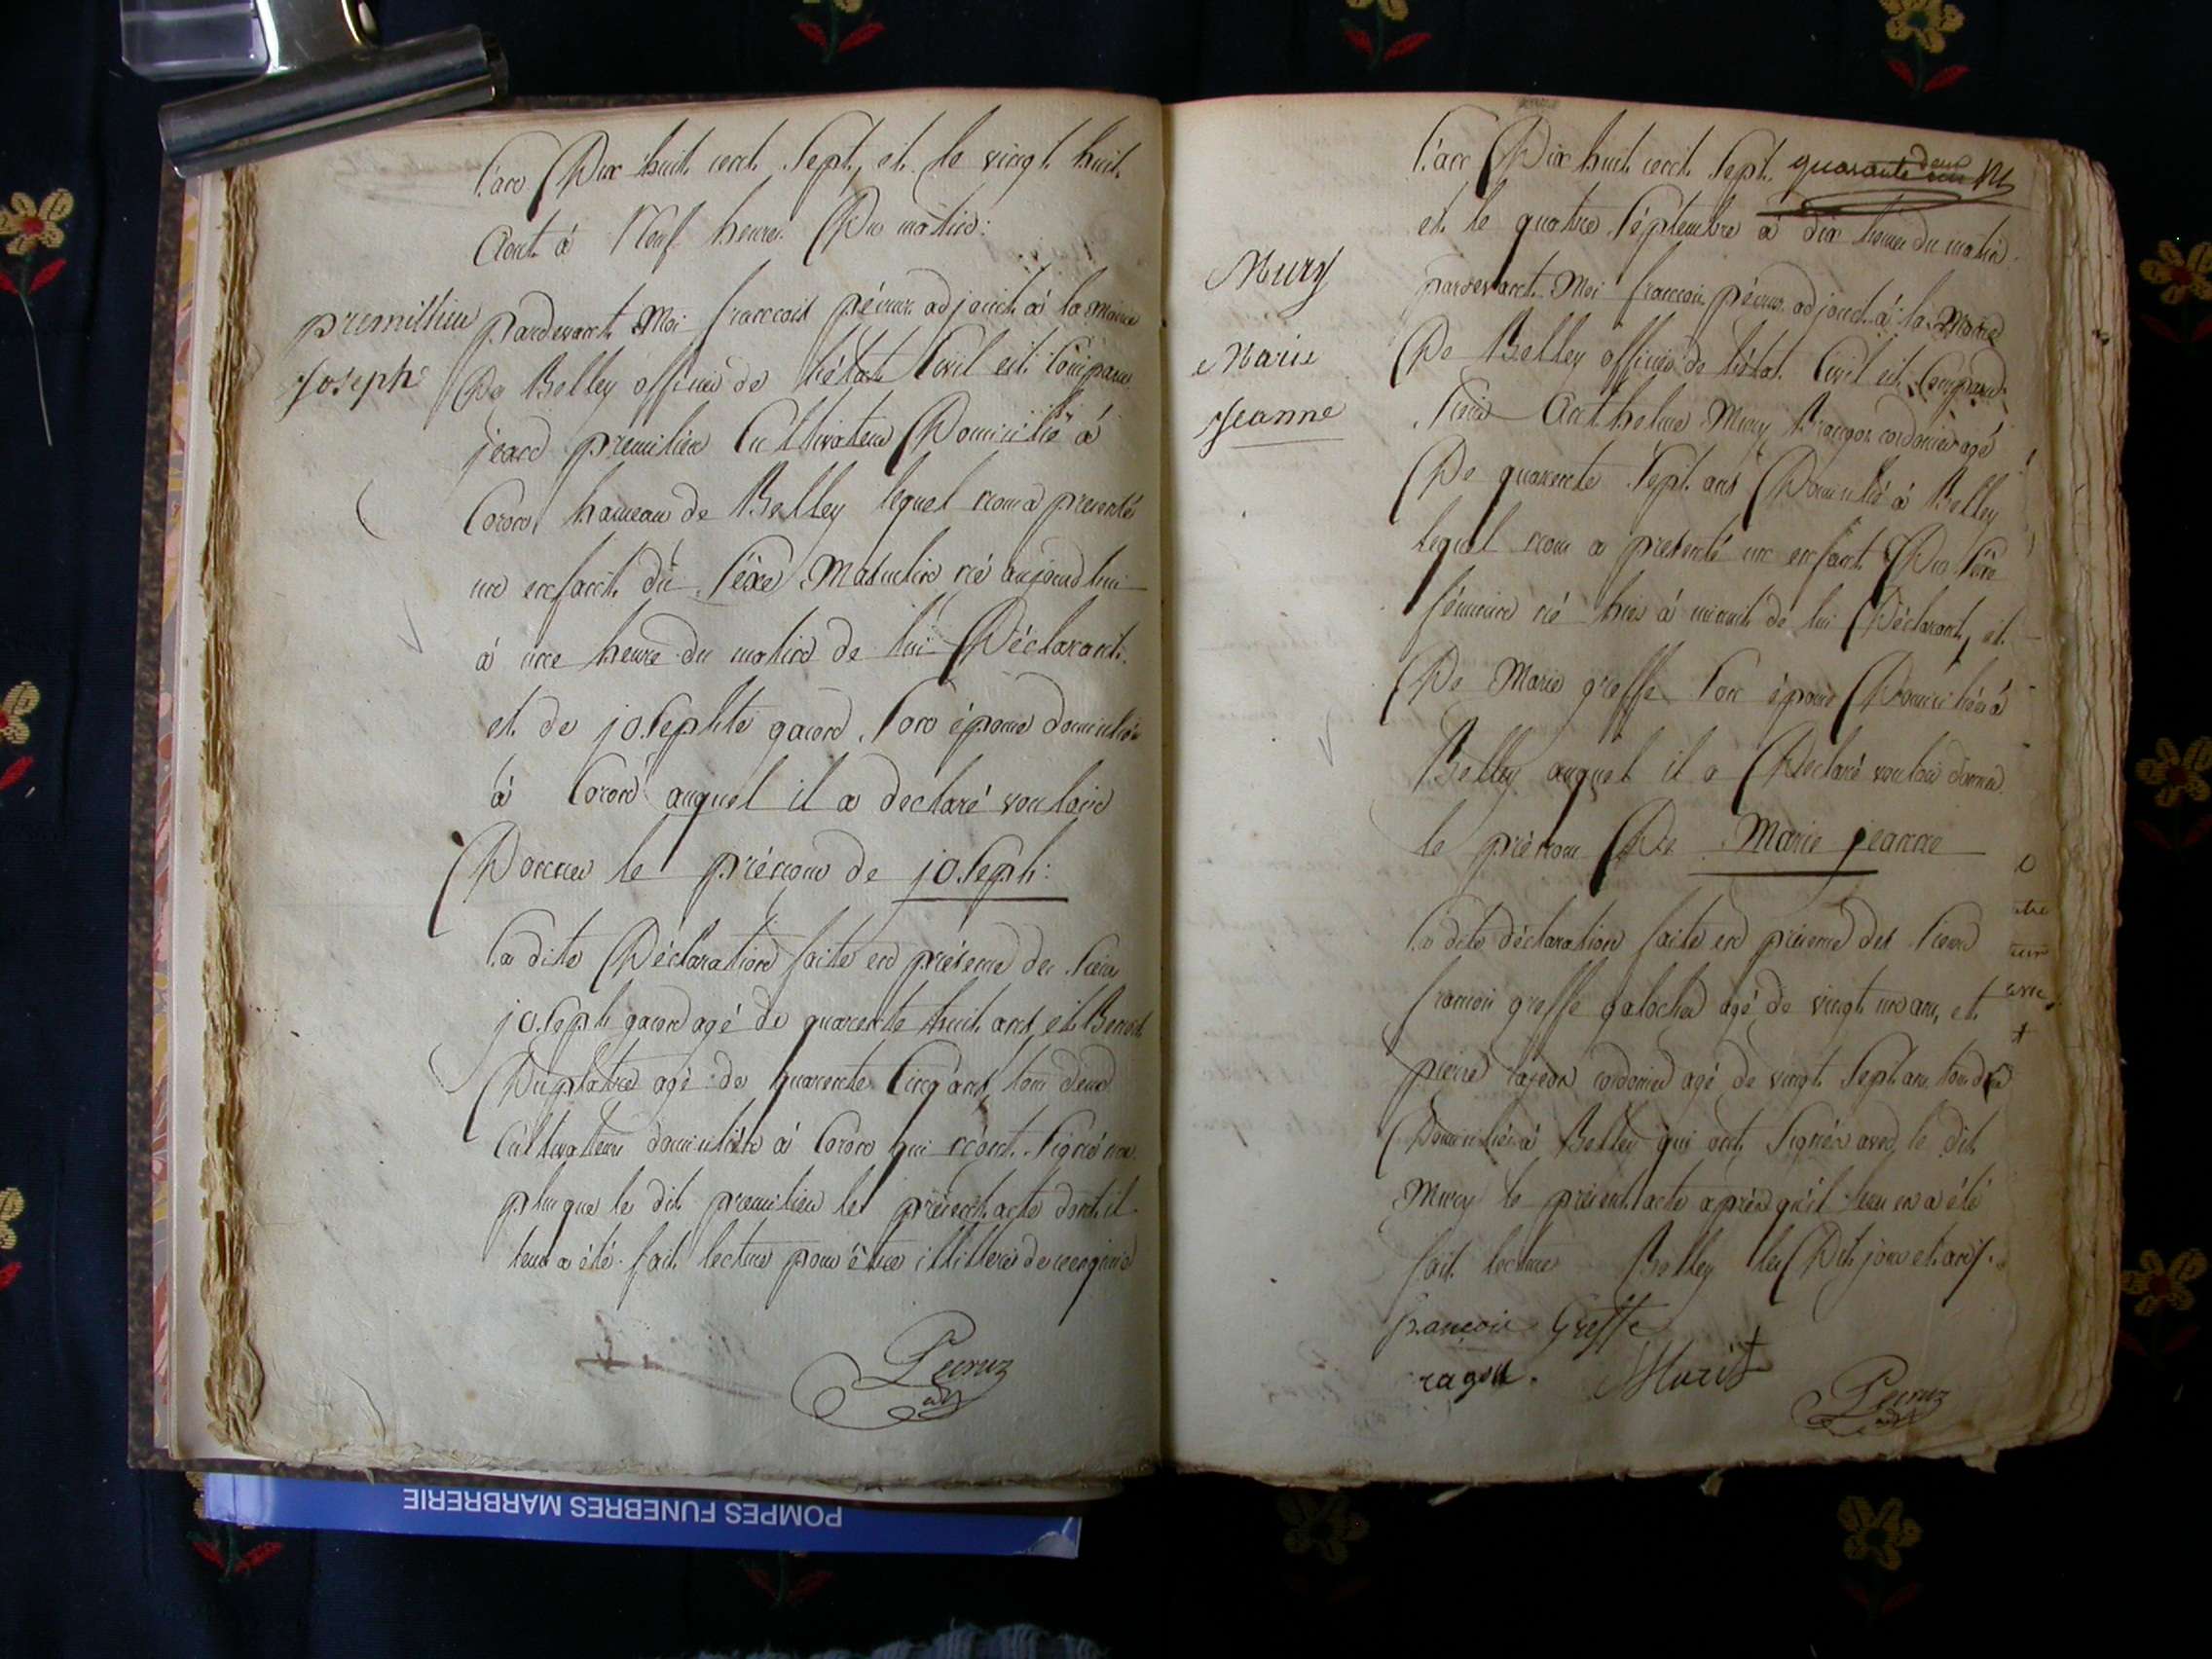 L'an Dix huit cent Sept, et le vingt huit
Aout à Neuf heures Du matin:
premillieu
Joseph
pardevant Moi francois pécruz adjoint à la mairie
De Belley officier de l'état Civil est Comparu
jean premilieu Cultivateur Domicilié à
Coron, hameau de Belley lequel nous a presenté
un enfant du Sèxe Masculin né aujourd'hui
à une heure du matin de lui Déclarant
et de joSephte gacon Son épouse domiciliée
à Coron auquel il a declaré vouloir
Donner le prénom de joSeph:
La dite Déclaration faite en présence des Sieurs
joSeph gacon agé de quarente huit ans, et Benoit
Duplatre agé de quarente Cinq ans, tous deux
Cultivateurs domiciliés à Coron qui n'ont Signé non
plus que le dit premilieu le présent acte dont il
leur a été fait lecture pour être illitteré de ce enquis
Pecruz
adj
L'an Dix huit cent Sept quarante deux
et le quatre Séptembre à dix heures du matin:
Mury
Marie
Jeanne
pardevant Moi francois pécruz adjoint à la Mairie
De Belley officier de l'état Civil est Comparu
Sieur Anthelme Mury cordonier agé
De quarente Sept ans Domicilié à Belley
lequel nous a presenté un enfant Du Sèxe
féminin né hier à minuit de lui Déclarant, et
De Marie greffe Son épouse Domiciliée à
Belley auquel il a Declaré vouloir donner
le prénom De Marie jeanne
La dite déclaration faite en présence des Sieurs
francois greffe galochier agé de vingt un ans, et
pierre rageon cordonier agé de vingt Sept ans tous deux
Domiciliés à Belley qui ont Signés avec le dit
Mury le présent acte après qu'il leur en a été
fait lecture Belley les Dit jour et an
francois Greffe
ragon. Murit
Pecruz
adj
POMPES FUNEBRES MARBRERIE